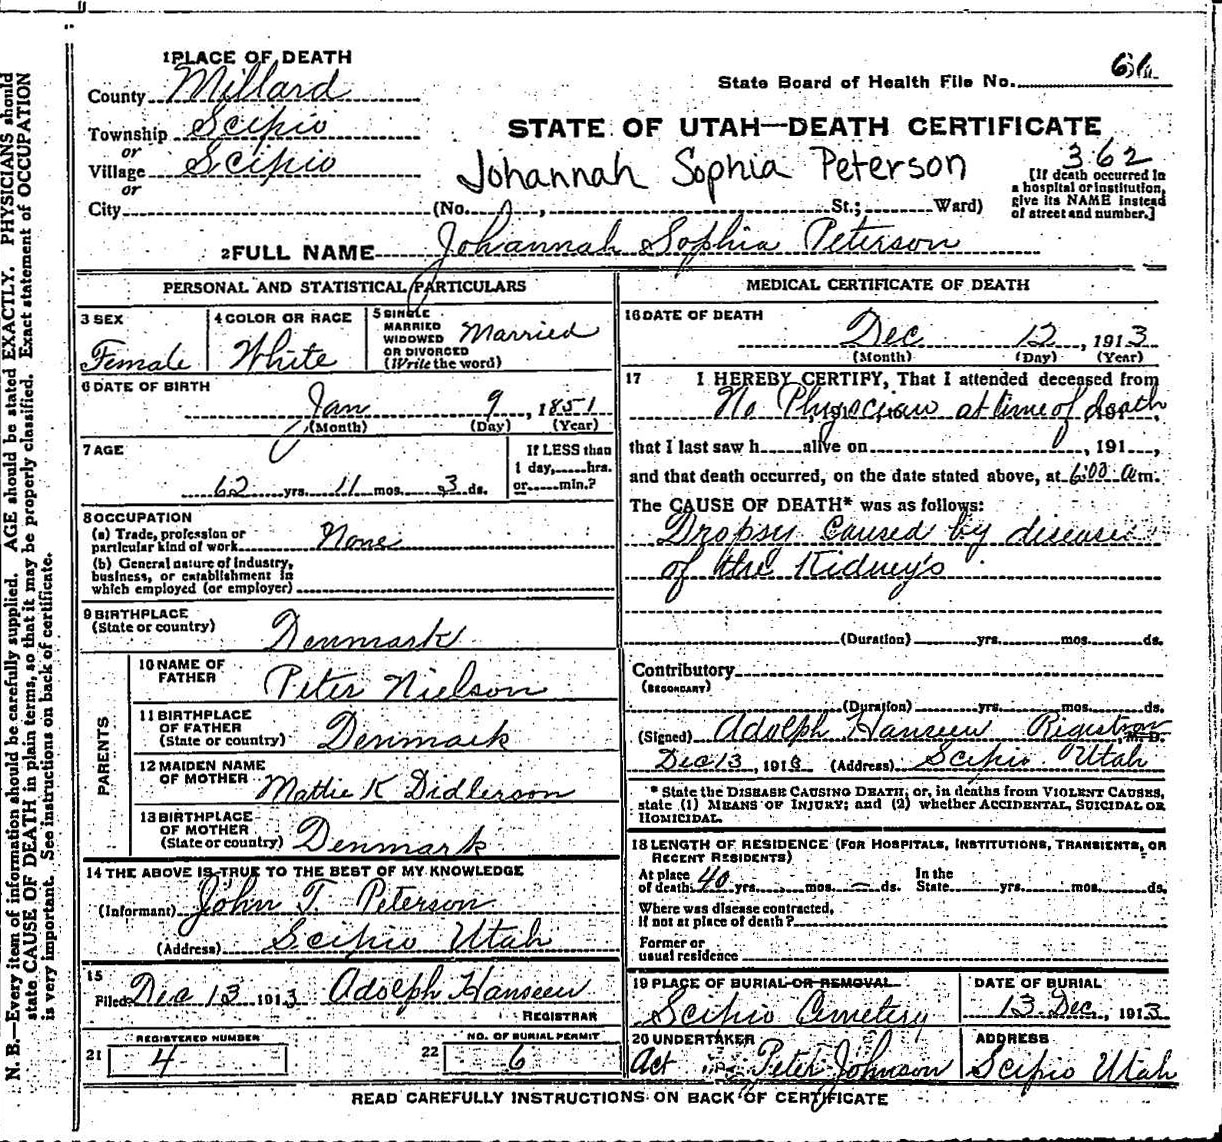 N. B.—Every item of information should be carefully supplied. AGE should be stated EXACTLY. PHYSICIANS should
state CAUSE OF DEATH in plain terms, so that it may be properly classified. Exact statement of OCCUPATION
is very important. See instructions on back of certificate.
1 PLACE OF DEATH
County Millard
State Board of Health File No. 61
Township Scipio
or
Village Scipio
or
STATE OF UTAH—DEATH CERTIFICATE
Johannah Sophia Peterson
362
[If death occurred in
a hospital or institution,
give its NAME instead
of street and number.]
City (No. , St.; Ward)
2 FULL NAME Johannah Sophia Peterson
PERSONAL AND STATISTICAL PARTICULARS
3 SEX
Female
4 COLOR OR RACE
White
5 SINGLE
MARRIED
WIDOWED
OR DIVORCED
(Write the word)
Married
6 DATE OF BIRTH
Jan 9, 1851
(Month) (Day) (Year)
7 AGE
62 yrs. 11 mos. 3 ds.
If LESS than
1 day, hrs.
or min.?
8 OCCUPATION
(a) Trade, profession or
particular kind of work None
(b) General nature of industry,
business, or establishment in
which employed (or employer)
9 BIRTHPLACE
(State or country)
Denmark
PARENTS
10 NAME OF
FATHER
Peter Nielson
11 BIRTHPLACE
OF FATHER
(State or country)
Denmark
12 MAIDEN NAME
OF MOTHER
Mattie K Didlerson
13 BIRTHPLACE
OF MOTHER
(State or country)
Denmark
14 THE ABOVE IS TRUE TO THE BEST OF MY KNOWLEDGE
(Informant) John T. Peterson
(Address) Scipio Utah
15
Filed Dec 13 1913 Adolph Hanseen
REGISTRAR
REGISTERED NUMBER
21 4
NO. OF BURIAL PERMIT
22 6
MEDICAL CERTIFICATE OF DEATH
16 DATE OF DEATH
Dec 12, 1913
(Month) (Day) (Year)
17 I HEREBY CERTIFY, That I attended deceased from
No Physician at time of death
that I last saw h alive on , 191 ,
and that death occurred, on the date stated above, at 6:00 a m.
The CAUSE OF DEATH* was as follows:
Dropsy caused by disease
of the Kidney's
(Duration) yrs. mos. ds.
Contributory
(SECONDARY)
(Duration) yrs. mos. ds.
(Signed) Adolph Hanseen Registrar M. D.
Dec 13, 1913 (Address) Scipio Utah
* State the DISEASE CAUSING DEATH, or, in deaths from VIOLENT CAUSES,
state (1) MEANS OF INJURY; and (2) whether ACCIDENTAL, SUICIDAL OR
HOMICIDAL.
18 LENGTH OF RESIDENCE (FOR HOSPITALS, INSTITUTIONS, TRANSIENTS, OR
RECENT RESIDENTS)
At place
of death 40 yrs. mos. — ds.
In the
State yrs. mos. ds.
Where was disease contracted,
if not at place of death?
Former or
usual residence
19 PLACE OF BURIAL OR REMOVAL
Scipio Cemetery
DATE OF BURIAL
13 Dec, 1913
20 UNDERTAKER
Act Peter Johnson
ADDRESS
Scipio Utah
READ CAREFULLY INSTRUCTIONS ON BACK OF CERTIFICATE